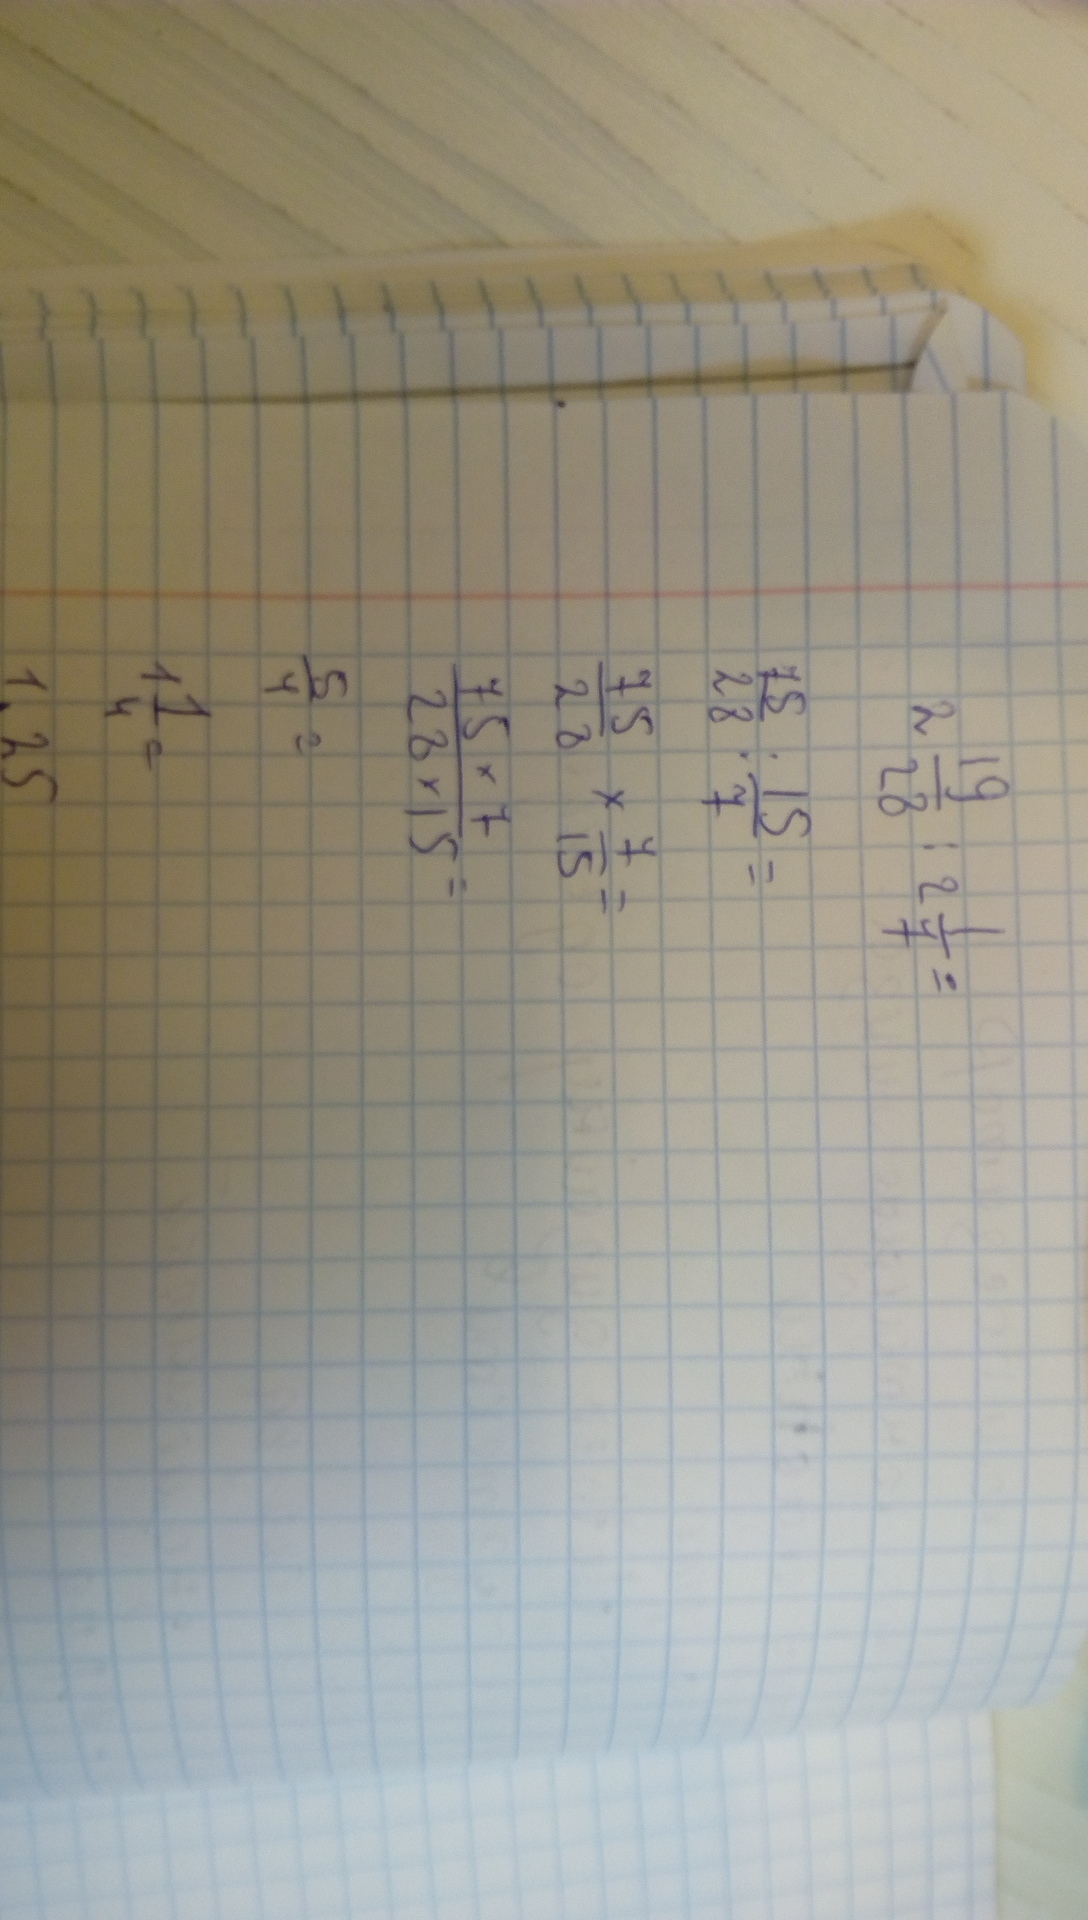 2 19/28 : 2 1/7 =
75/28 : 15/7 =
75/28 × 7/15 =
75 × 7/28 × 15 =
5/4 =
1 1/4 =
1,25